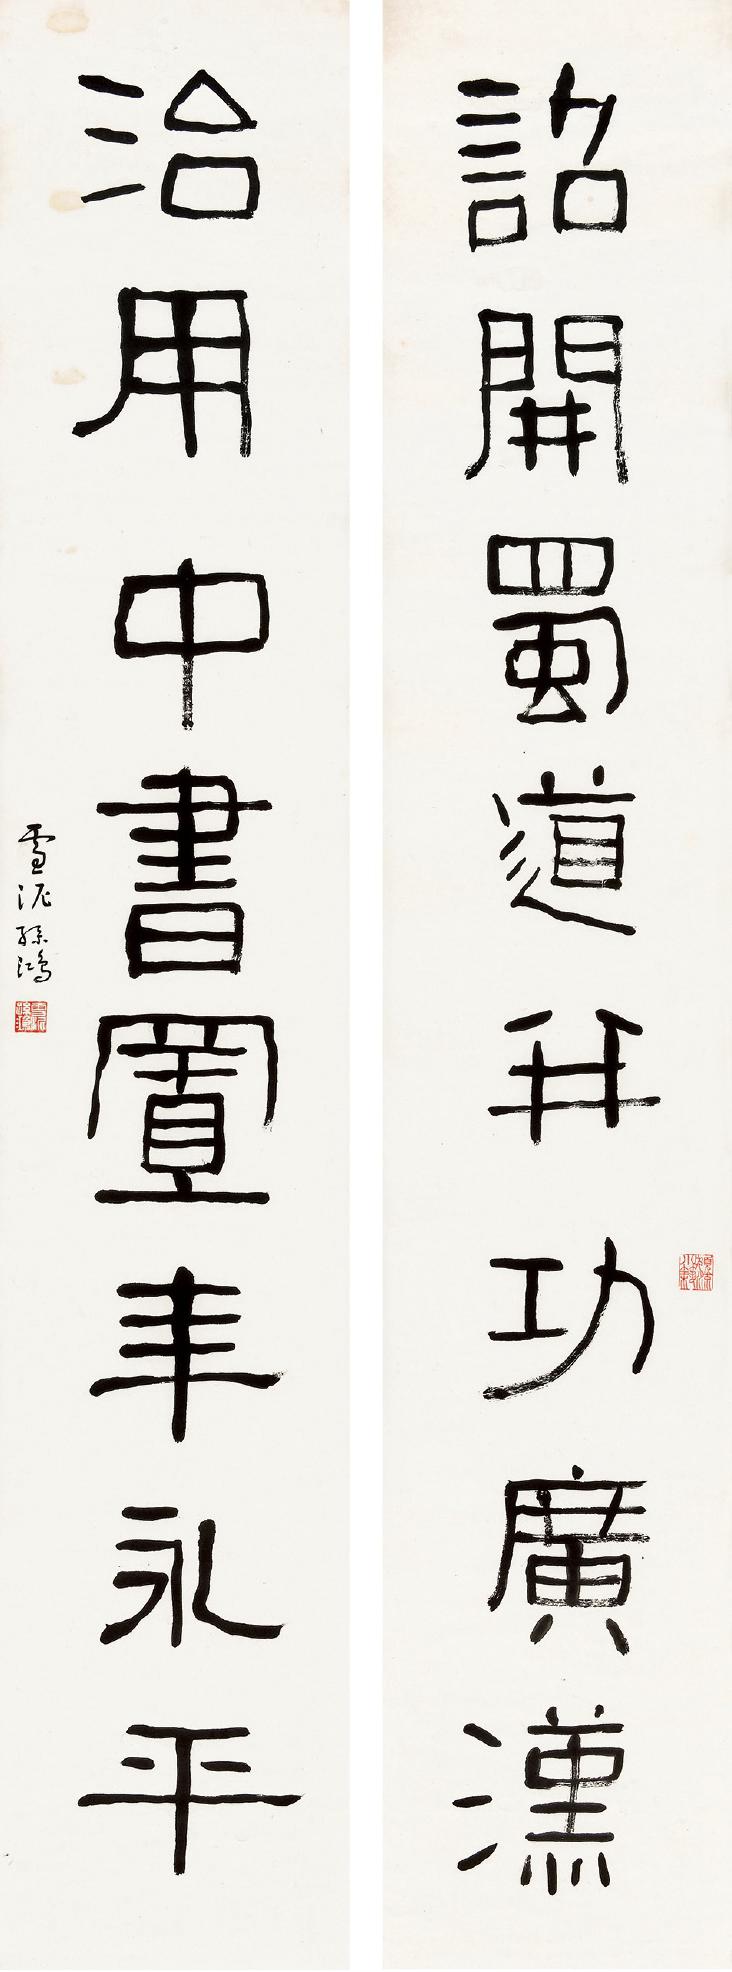 詔開蜀道并功廣漢
治用中書置年永平
雪泥孫鴻